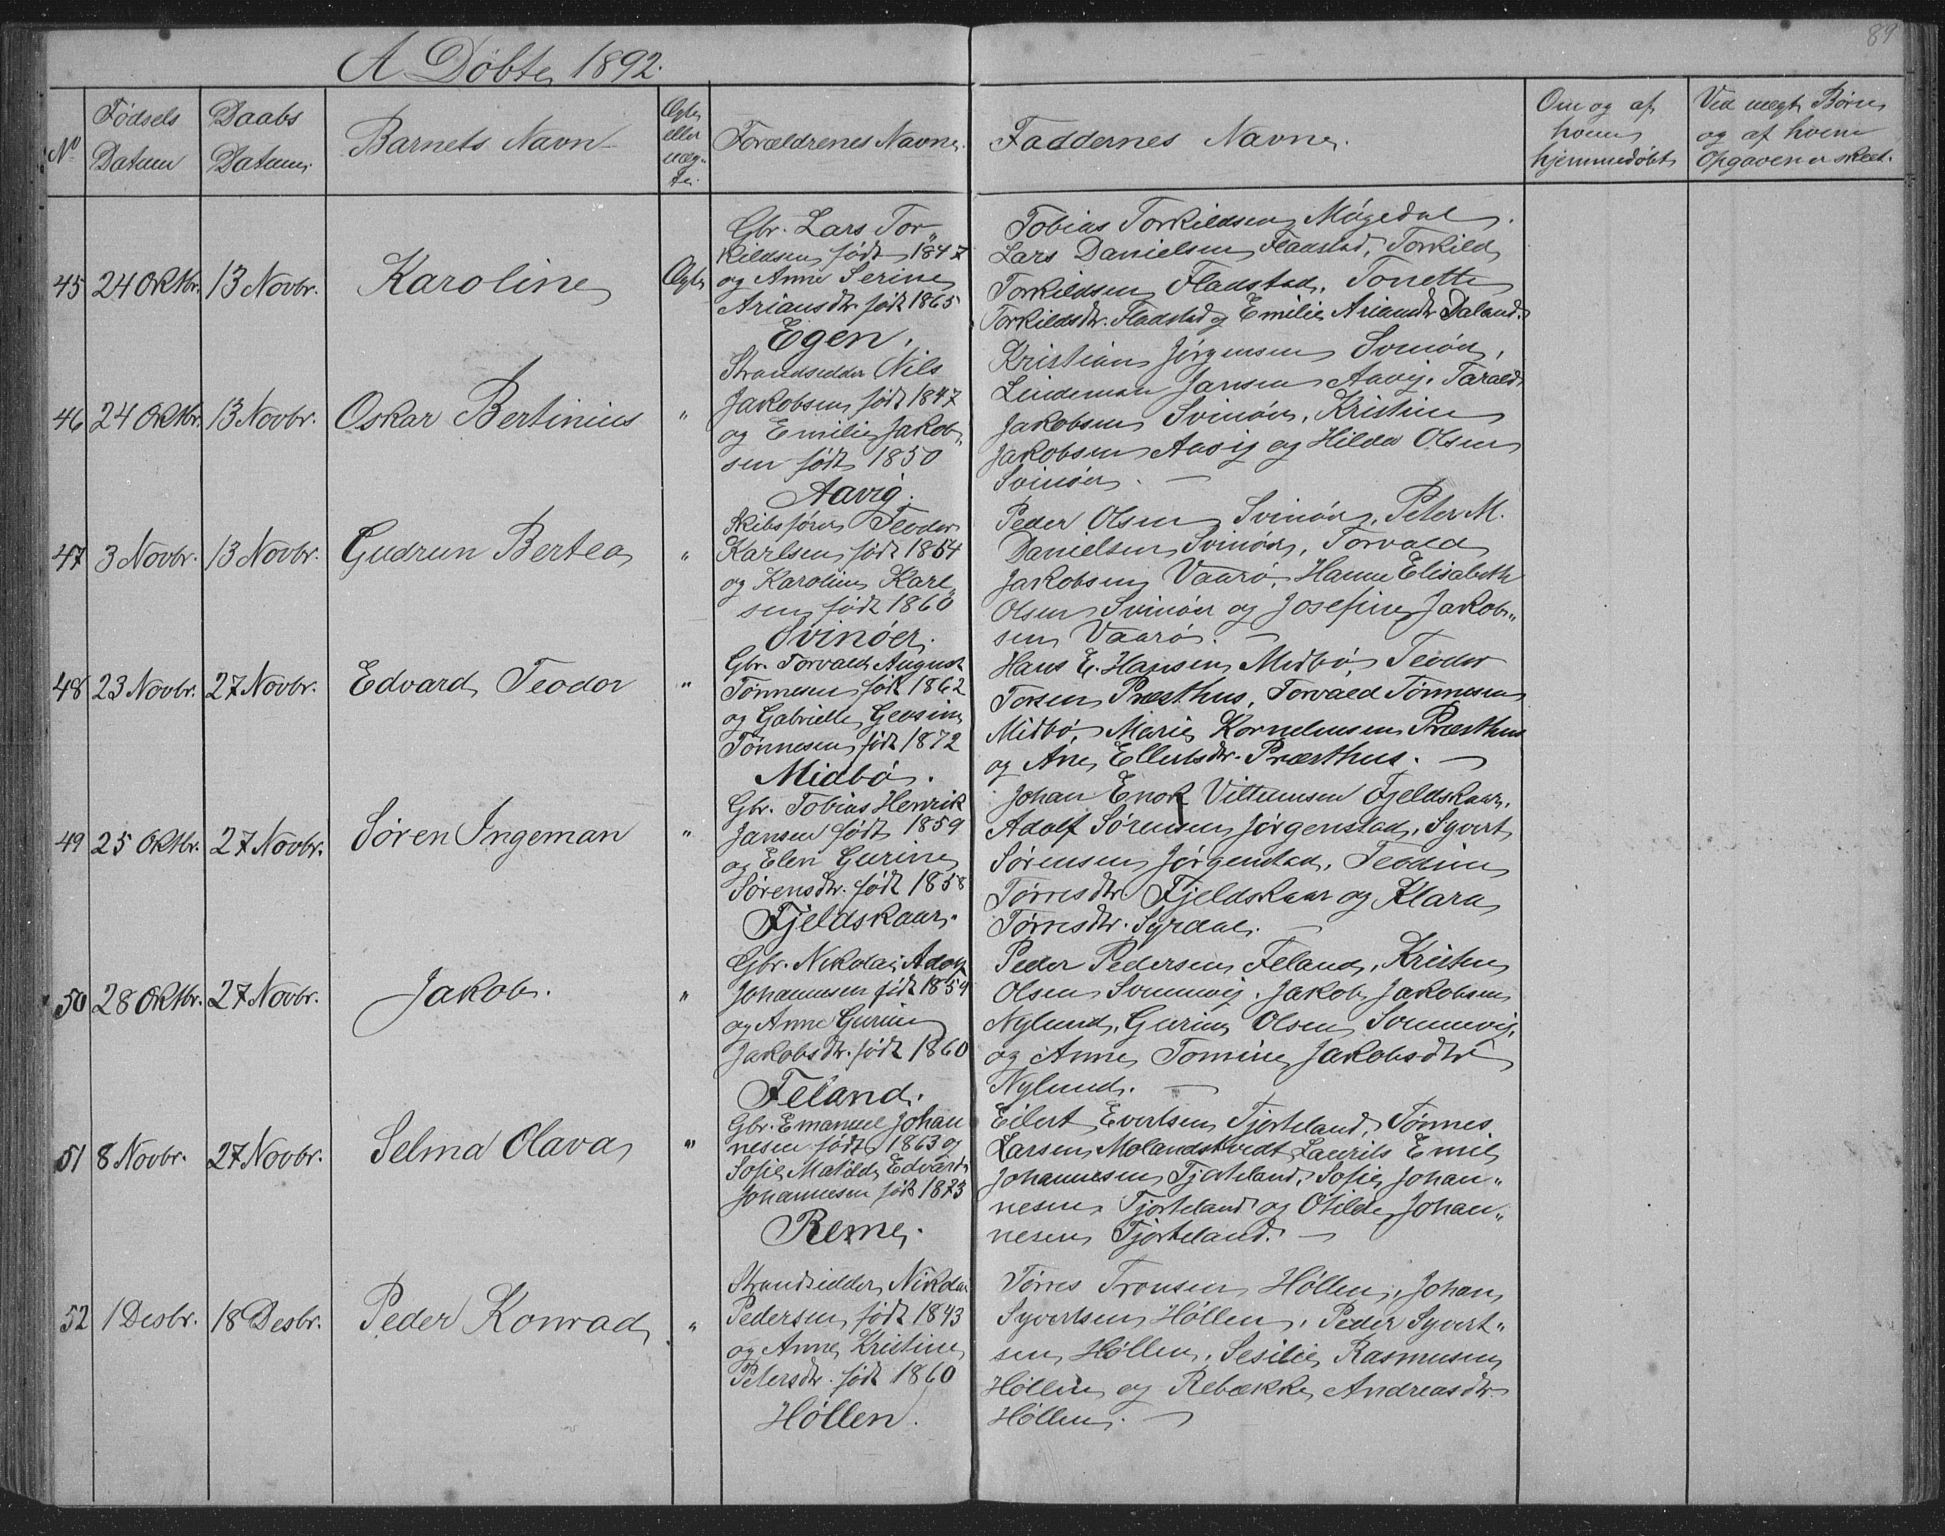 89
A Døbte 1892.
No
Fødsels Datum
Daabs Datum
Barnets Navn
Ægte eller uæg- te.
Forældrenes Navne.
Faddernes Navne.
Om og af hvem hjemmedøbt
Ved uægte Børn og af hvem Opgaven er skeet.
45 24 Oktbr. 13 Novbr. Karoline Ægte
Gbr. Lars Tor„
kildsen født 1847
og Anne Serine
Ariansdtr. født 1865
Egen.
Tobias Torkildsen Møgedal.
Lars Danielsen Fladstad, Torkild
Torkildsen Fladstad, Tonette
Torkildsdtr. Fladstad og Emilie Ariansdtr Daland.
46 24 Oktbr. 13 Novbr. Oskar Bertinius „
Strandsidder Nils
Jakobsen født 1847
og Emilie Jakob„
sen født 1850
Aavig.
Kristian Jørgensen Svinør,
Lindeman Jansen Aavig, Tarald
Jakobsen Svinør, Kristine
Jakobsen Aavig og Hilda Olsen
Svinør. —
47 3 Novbr. 13 Novbr. Gudrun Bertea „
Skibsfører Teodor
Karlsen født 1854
og Karoline Karl„
sen født 1860
Svinøer.
Peder Olsen Svinør, Peter M.
Danielsen Svinør, Torvald
Jakobsen Vaarø, Hanne Elisabeth
Olsen Svinøer og Josefine Jakob„
sen Vaarø. —
48 23 Novbr. 27 Novbr. Edvard Teodor „
Gbr. Torvald August
Tønnesen født 1862
og Gabrielle Gevsine
Tønnesen født 1872
Midbø.
Hans E. Hansen Midbø, Teodor
Torsen Præsthus, Torvald Tønnesen
Midbø, Marie Korneliusen Præsthus
og Ane Ellertsdtr. Præsthus. —
49 25 Oktbr. 27 Novbr. Søren Ingeman „
Gbr. Tobias Henrik
Jansen født 1859
og Elen Gurine
Sørensdtr. født 1858
Fjeldskaar.
Johan Enok Villumsen Fjeldskaar,
Adolf Sørensen Jørgenstad, Syvert
Sørensen Jørgenstad, Teodine
Tørresdtr Fjeldskaar og Klara
Tørresdtr. Syrdal. —
50 28 Oktbr. 27 Novbr. Jakob. „
Gbr. Nikolai Adolf
Johannesen født 1859
og Anne Gurine
Jakobsdtr. født 1860
Feland.
Peder Pedersen Feland, Kristen
Olsen Svennevig, Jakob Jakobsen
Nylund, Gurine Olsen Svennevig,
og Anne Tomine Jakobsdtr
Nylund. —
51 8 Novbr. 27 Novbr. Selma Olava „
Gbr. Emanuel Johan
nesen født 1863 og
Sofie Matilde Edvards
Johannesen født 1873
Reme.
Eilert Evertsen Tjorteland, Tønnes
Larsen Molandskvedt Laurits Emil
Johannesen Tjorteland, Sofie Johan„
nesen Tjorteland og Otilde Johan„
nesen Tjorteland. —
52 1 Desbr. 18 Desbr. Peder Konrad „
Strandsidder Nikolai
Pedersen født 1843
og Anne Kristine
Petersdtr. født 1860
Høllen.
Tørres Tronsen Høllen, Johan
Syvertsen Høllen, Peder Syvert„
sen Høllen, Sesilie Rasmusen
Høllen og Rebække Andreasdtr
Høllen. —